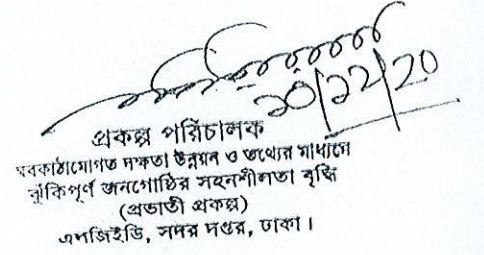 ২০/১২/২০
প্রকল্প পরিচালক
অবকাঠামোগত দক্ষতা উন্নয়ন ও তথ্যের মাধ্যমে
ঝুঁকিপূর্ণ জনগোষ্ঠির সহনশীলতা বৃদ্ধি
(প্রভাতী প্রকল্প)
এলজিইডি, সদর দপ্তর, ঢাকা।